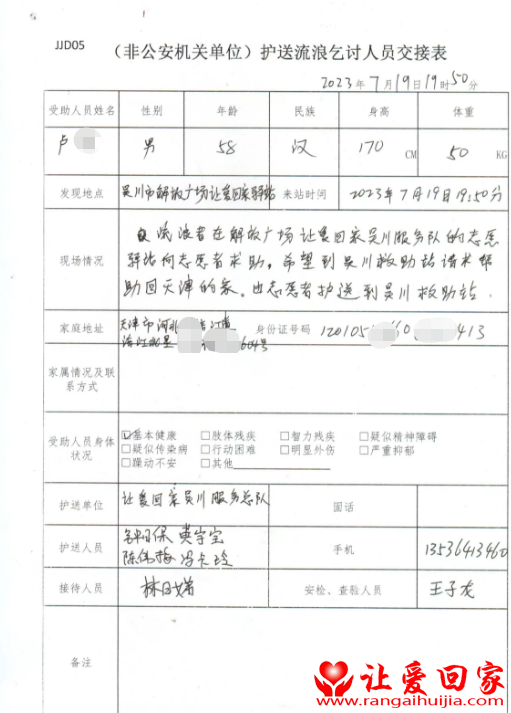 JJD05
（非公安机关单位）护送流浪乞讨人员交接表
2023年7月19日19时50分
受助人员姓名 性别 年龄 民族 身高 体重
卢 男 58 汉 170 CM 50 KG
发现地点 吴川市解放广场让爱回家驿站 来站时间 2023年7月19日19:50分
现场情况
流浪者在解放广场让爱回家吴川服务队的志愿
驿站向志愿者求助，希望到吴川救助站请求帮
助回天津的家。由志愿者护送到吴川救助站.
家庭地址 天津市河北 604号 身份证号码 120105 60 413
家属情况及联
系方式
受助人员身体
状况
☑基本健康 □肢体残疾 □智力残疾 □疑似精神障碍
□疑似传染病 □行动困难 □明显外伤 □严重抑郁
□躁动不安 □其他
护送单位 让爱回家吴川服务总队 固话
护送人员 陈伟梅 手机 13536413460
接待人员 林日娣 安检、查验人员 王子龙
备注
让爱回家
www.rangaihuijia.com